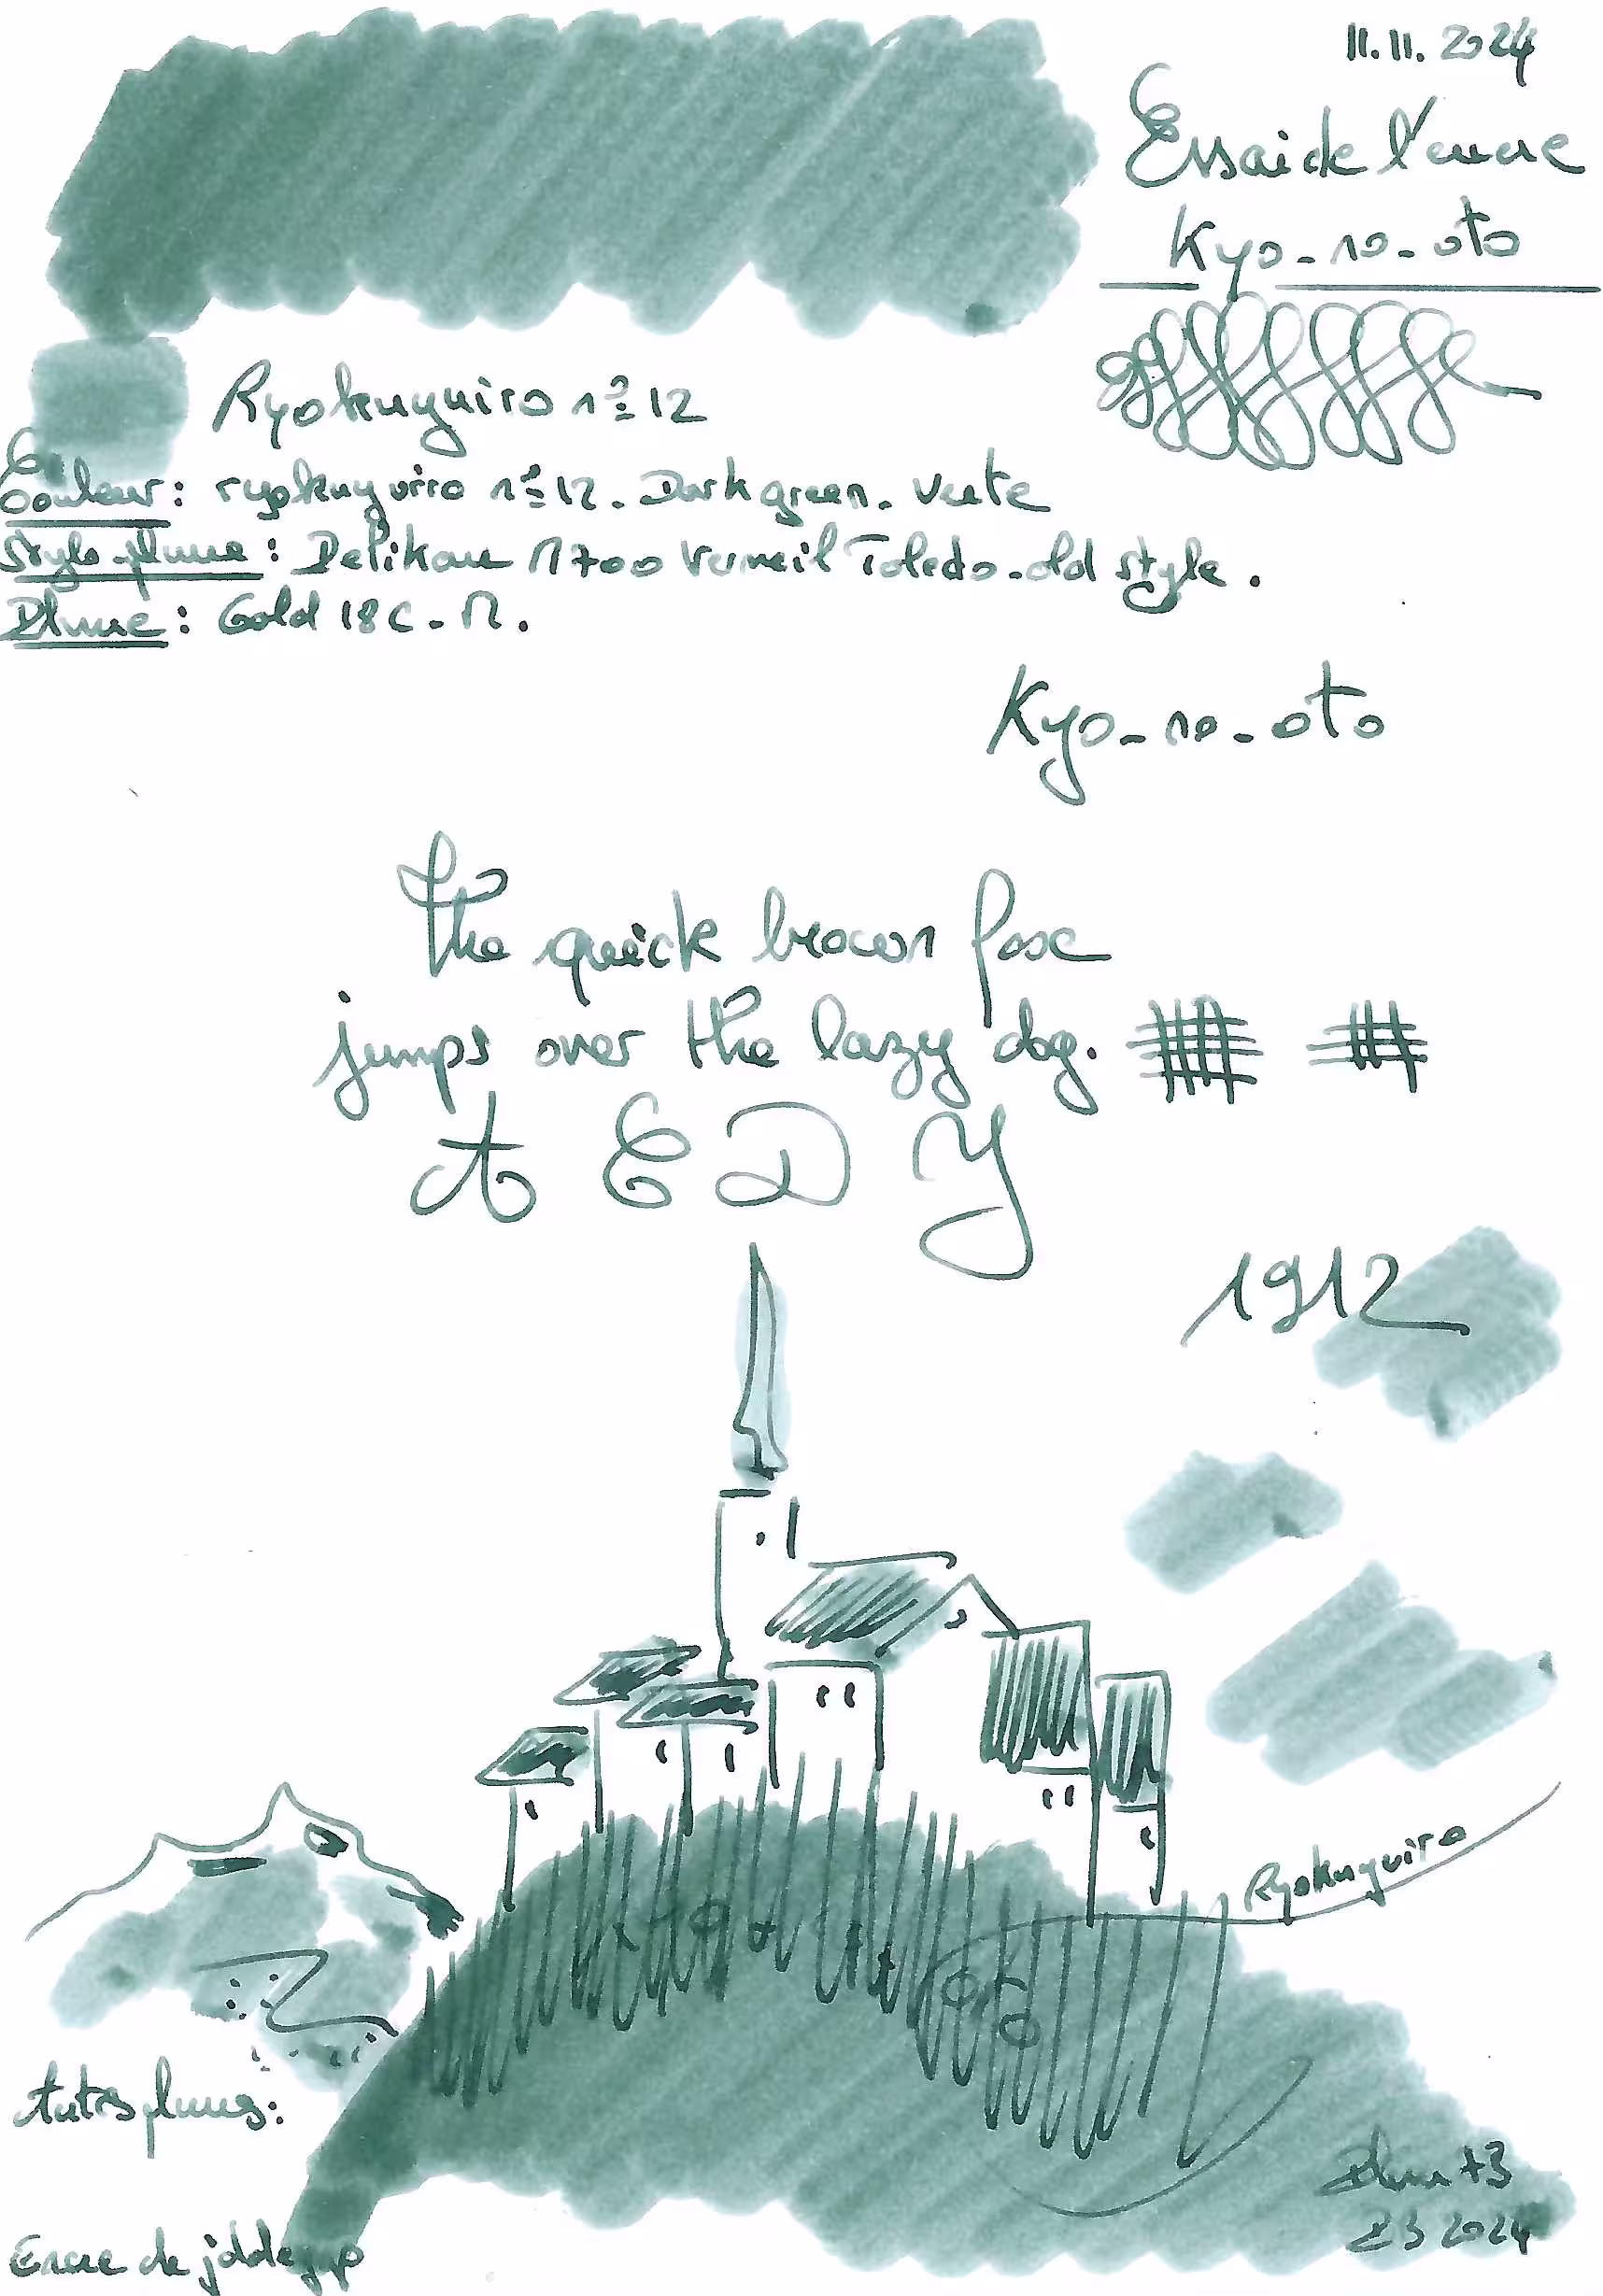 11.11.2024
Essai de l'encre
Kyo-no-oto
Ryokuyuiro nº 12
Couleur: ryokuyuiro nº 12. Dark green. verte
Style plume: Pelikan M700 Vermeil Toledo-old style.
Plume: Gold 18C-M.
Kyo-no-oto
The quick brown fox
jumps over the lazy dog.
A E D Y
1912
Ryokuyuiro
Autres plumes:
2024
Encre de